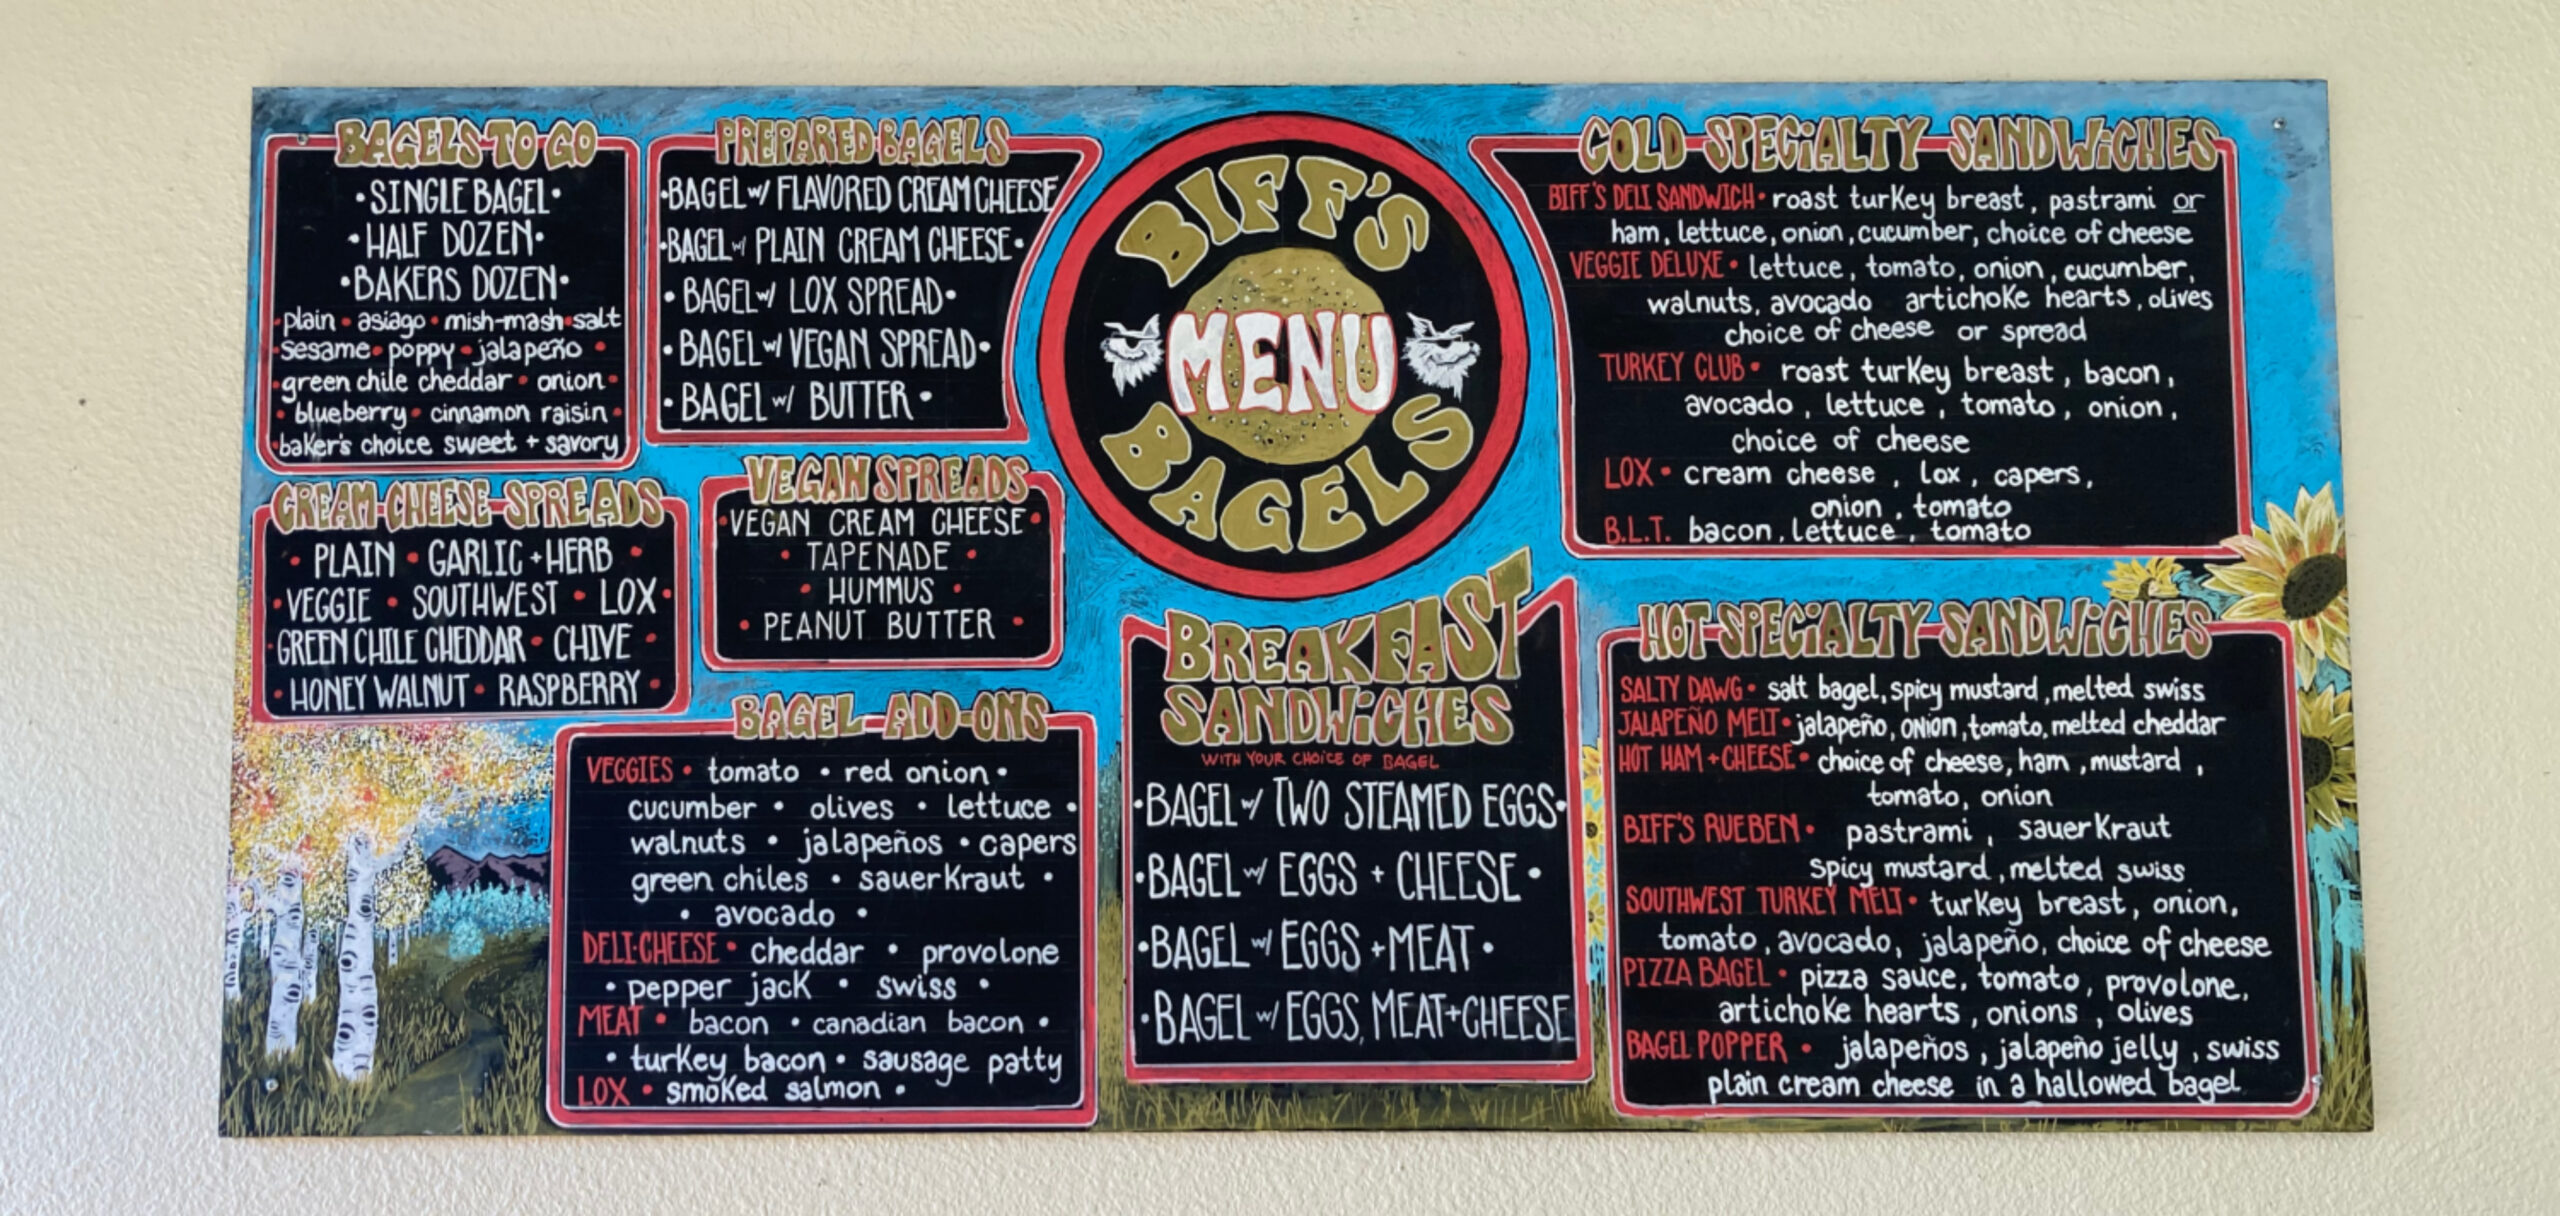 BAGELS TO GO
•SINGLE BAGEL•
•HALF DOZEN•
•BAKERS DOZEN•
•plain • asiago • mish-mash•salt
•sesame• poppy •jalapeño •
•green chile cheddar • onion•
• blueberry• cinnamon raisin •
•baker's choice sweet + savory
PREPARED BAGELS
•BAGEL w/ FLAVORED CREAM CHEESE
•BAGEL w/ PLAIN CREAM CHEESE•
• BAGEL w/ LOX SPREAD•
• BAGEL w/ VEGAN SPREAD•
• BAGEL w/ BUTTER •
CREAM CHEESE SPREADS
• PLAIN • GARLIC + HERB •
•VEGGIE • SOUTHWEST • LOX•
•GREEN CHILE CHEDDAR • CHIVE •
• HONEY WALNUT • RASPBERRY •
VEGAN SPREADS
•VEGAN CREAM CHEESE•
• TAPENADE •
• HUMMUS •
• PEANUT BUTTER •
BAGEL ADD-ONS
VEGGIES • tomato • red onion •
cucumber • olives • lettuce •
walnuts • jalapeños • capers
green chiles • sauerkraut •
• avocado •
DELI•CHEESE • cheddar • provolone
• pepper jack • swiss •
MEAT • bacon • canadian bacon •
• turkey bacon • sausage patty
LOX • smoked salmon •
BIFF'S
MENU
BAGELS
BREAKFAST
SANDWiCHES
WITH YOUR CHOiCE OF BAGEL
•BAGEL w/ TWO STEAMED EGGS•
•BAGEL w/ EGGS + CHEESE •
•BAGEL w/ EGGS +MEAT •
•BAGEL w/ EGGS, MEAT+CHEESE
COLD SPECiALTY SANDWiCHES
BIFF'S DELI SANDWICH• roast turkey breast, pastrami or
ham, lettuce, onion, cucumber, choice of cheese
VEGGIE DELUXE • lettuce, tomato, onion, cucumber,
walnuts, avocado artichoke hearts, olives
choice of cheese or spread
TURKEY CLUB • roast turkey breast, bacon,
avocado, lettuce, tomato, onion,
choice of cheese
LOX • cream cheese, lox, capers,
onion, tomato
B.L.T. bacon, lettuce, tomato
HOT SPECiALTY SANDWiCHES
SALTY DAWG • salt bagel, spicy mustard, melted swiss
JALAPEÑO MELT •jalapeño, onion, tomato, melted cheddar
HOT HAM + CHEESE • choice of cheese, ham, mustard,
tomato, onion
BIFF'S RUEBEN • pastrami, sauerkraut
spicy mustard, melted swiss
SOUTHWEST TURKEY MELT • turkey breast, onion,
tomato, avocado, jalapeño, choice of cheese
PIZZA BAGEL • pizza sauce, tomato, provolone,
artichoke hearts, onions, olives
BAGEL POPPER • jalapeños, jalapeño jelly, swiss
plain cream cheese in a hallowed bagel